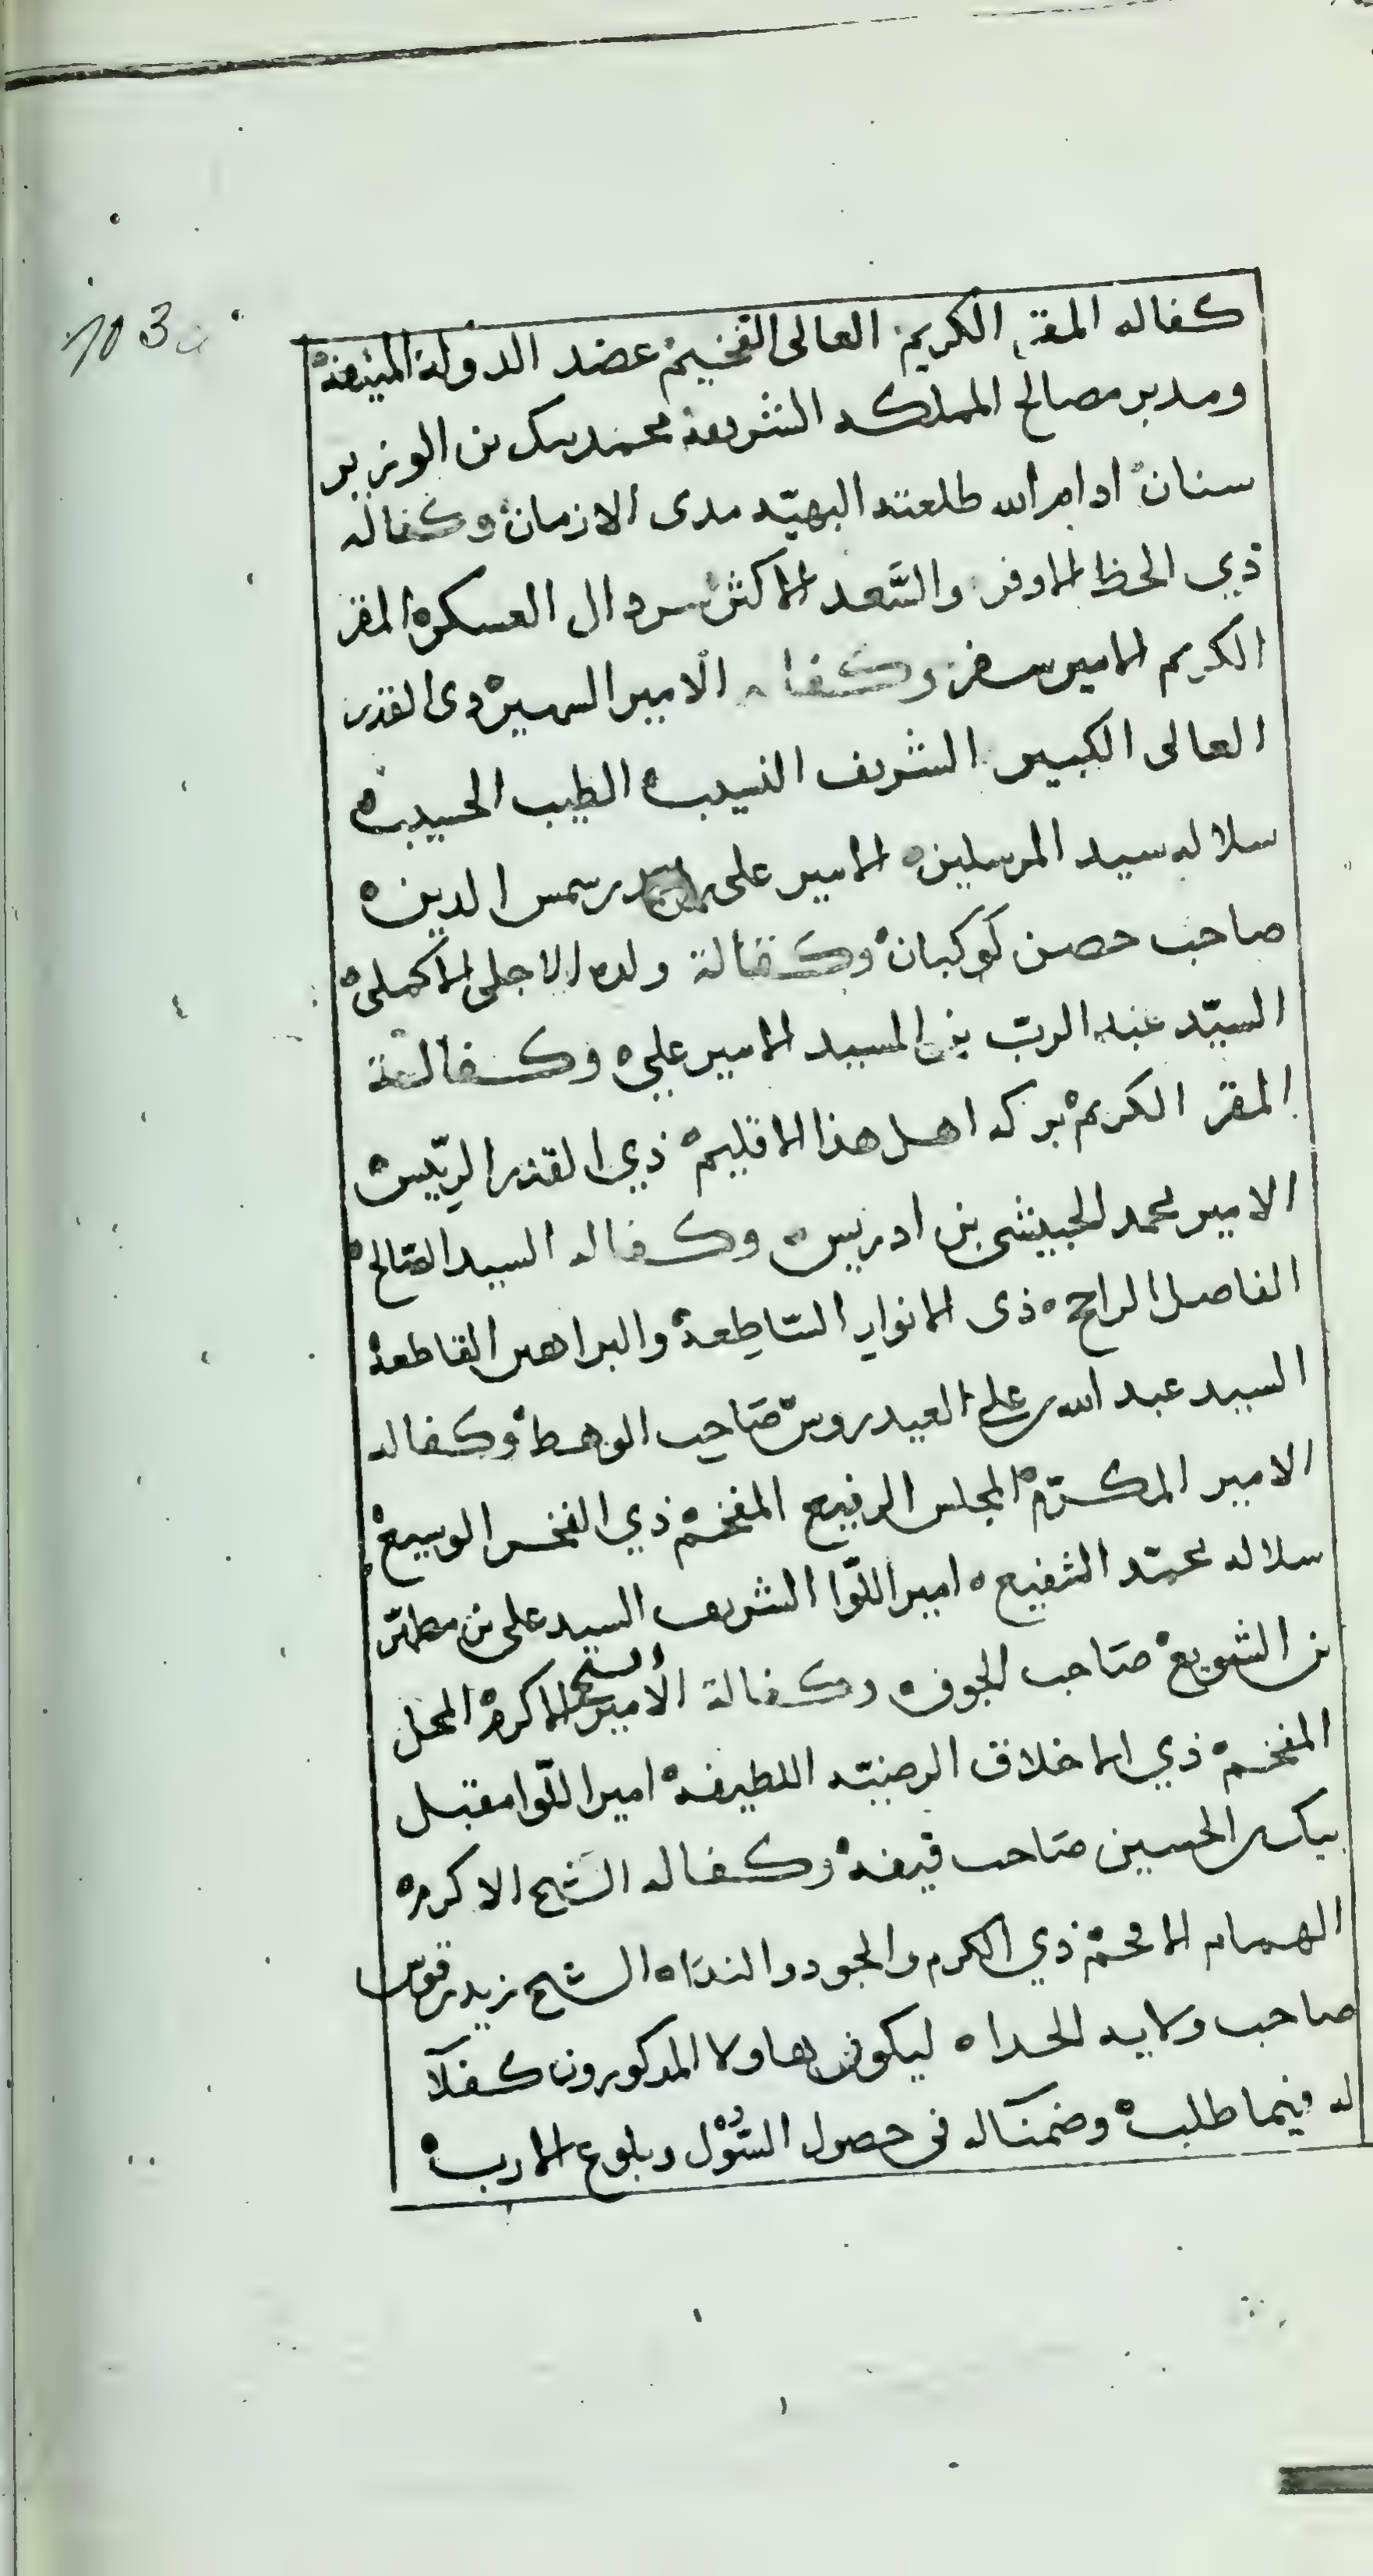 103
كفاله المقر الكريم العالى الفخيم عضد الدولة المنيفة
ومدبر مصالح المملكه الشريفة محمد بيك بن الوزير
سنان ادام الله طلعته البهيّه مدى الازمان وكفاله
ذي الحظ الاوفر والسَّعد الاكثر سردال العسكر المقر
الكريم الامير سفر وكفاله الامير الشهير ذى القدر
العالى الكبير الشريف النسيب الطيب الحسيب
سلاله سيد المرسلين الامير على بن شمس الدين
صاحب حصن كوكبان وكفالة ولده الاجلى الاكملى
السيّد عبد الربّ بن السيد الامير علي وكفالة
المقر الكريم بركه اهل هذا الاقليم ذي القدر الريّيس
الامير محمد الحبيشى بن ادريس وكفاله السيد الصّالح
الفاضل الراجح ذى الانوار السّاطِعة والبراهين القاطعة
السيد عبد الله بن علي العيدروس صَاحِب الوهط وكفاله
الامير المكرّم المجلس الرفيع المفخم ذي الفخر الوسيع
سلاله محمّد الشفيع امير اللّوا الشريف السيد على بن مطهّر
بن الشويع صَاحب الجوف وكفالة الامير الشيخ الاكرم المحل
المفخم ذي الاخلاق الرضيّه اللطيفة امير اللّوا مقبل
بيك بن الحسين صَاحب قيفة وكفاله الشَيخ الاكرم
الهمام الافخم ذي الكرم والجود والندَا الشيخ زيد بن قوس
صاحب ولايه الحدا ليكون بهاولا المذكورون كفلآ
له فيما طلب وضمنآله فى حصول السُّوْل وبلوغ الارب